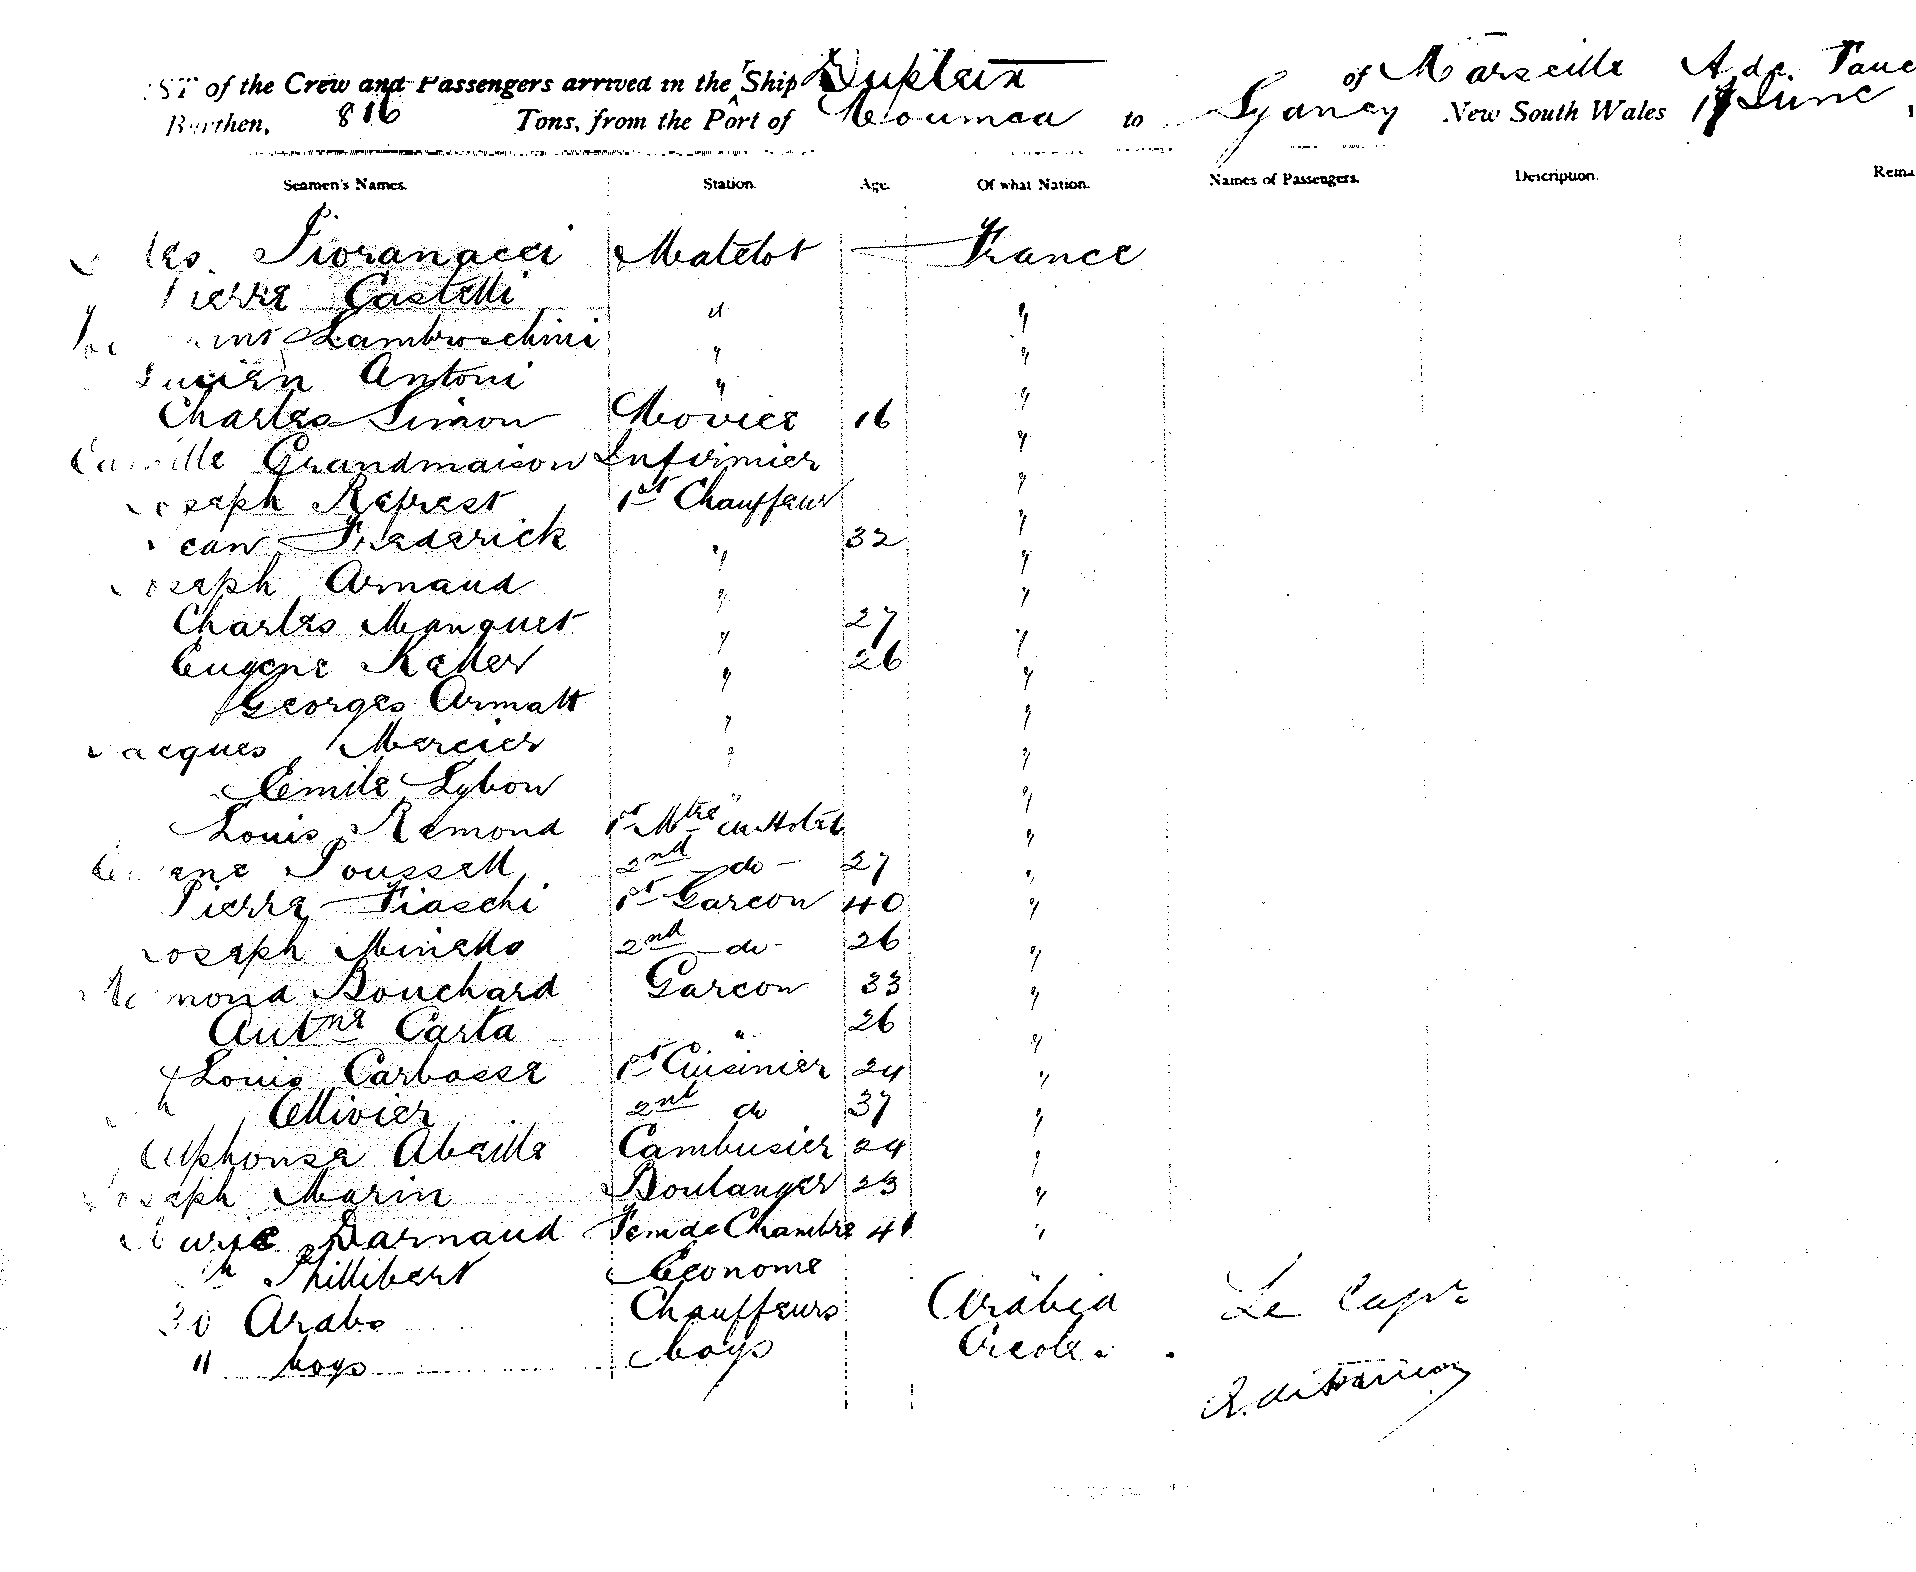 ST of the Crew and Passengers arrived in the Ship Dupleix of Marseille
Burthen, 816 Tons, from the Port of Noumea to Sydney New South Wales 17 June
Seamen's Names. Station. Age. Of what Nation. Names of Passengers. Description. Rema
Fioranacci Matelot — France
Pierre Castelli " "
Lambroschini " "
Lucien Antoni " "
Charles Simon Novice 16 "
Camille Grandmaison Infirmier "
Joseph Represt 1st Chauffeur "
Jean Frederick " 32 "
Joseph Armaud " "
Charles Manquet " 27 "
Eugene Keller " 26 "
Georges Armatt " "
Jacques Mercier " "
Emile Lybon " "
Louis Remond 1st Mtre du Hotel "
Poussell 2nd — do — 27 "
Pierre Fiaschi 1st Garcon 40 "
Joseph Minello 2nd — do - 26 "
Bouchard Garcon 33 "
Antne Carta " 26 "
Louis Carbosse 1st Cuisinier 24 "
Ollivier 2nd do 37 "
Alphonse Abeille Cambusier 24 "
Joseph Marin Boulanger 23 "
Darnaud Fem de Chambre 41 "
Phillibert Econome
30 Arabs Chauffeurs Arabia Le Capne
11 boys boys Creole.